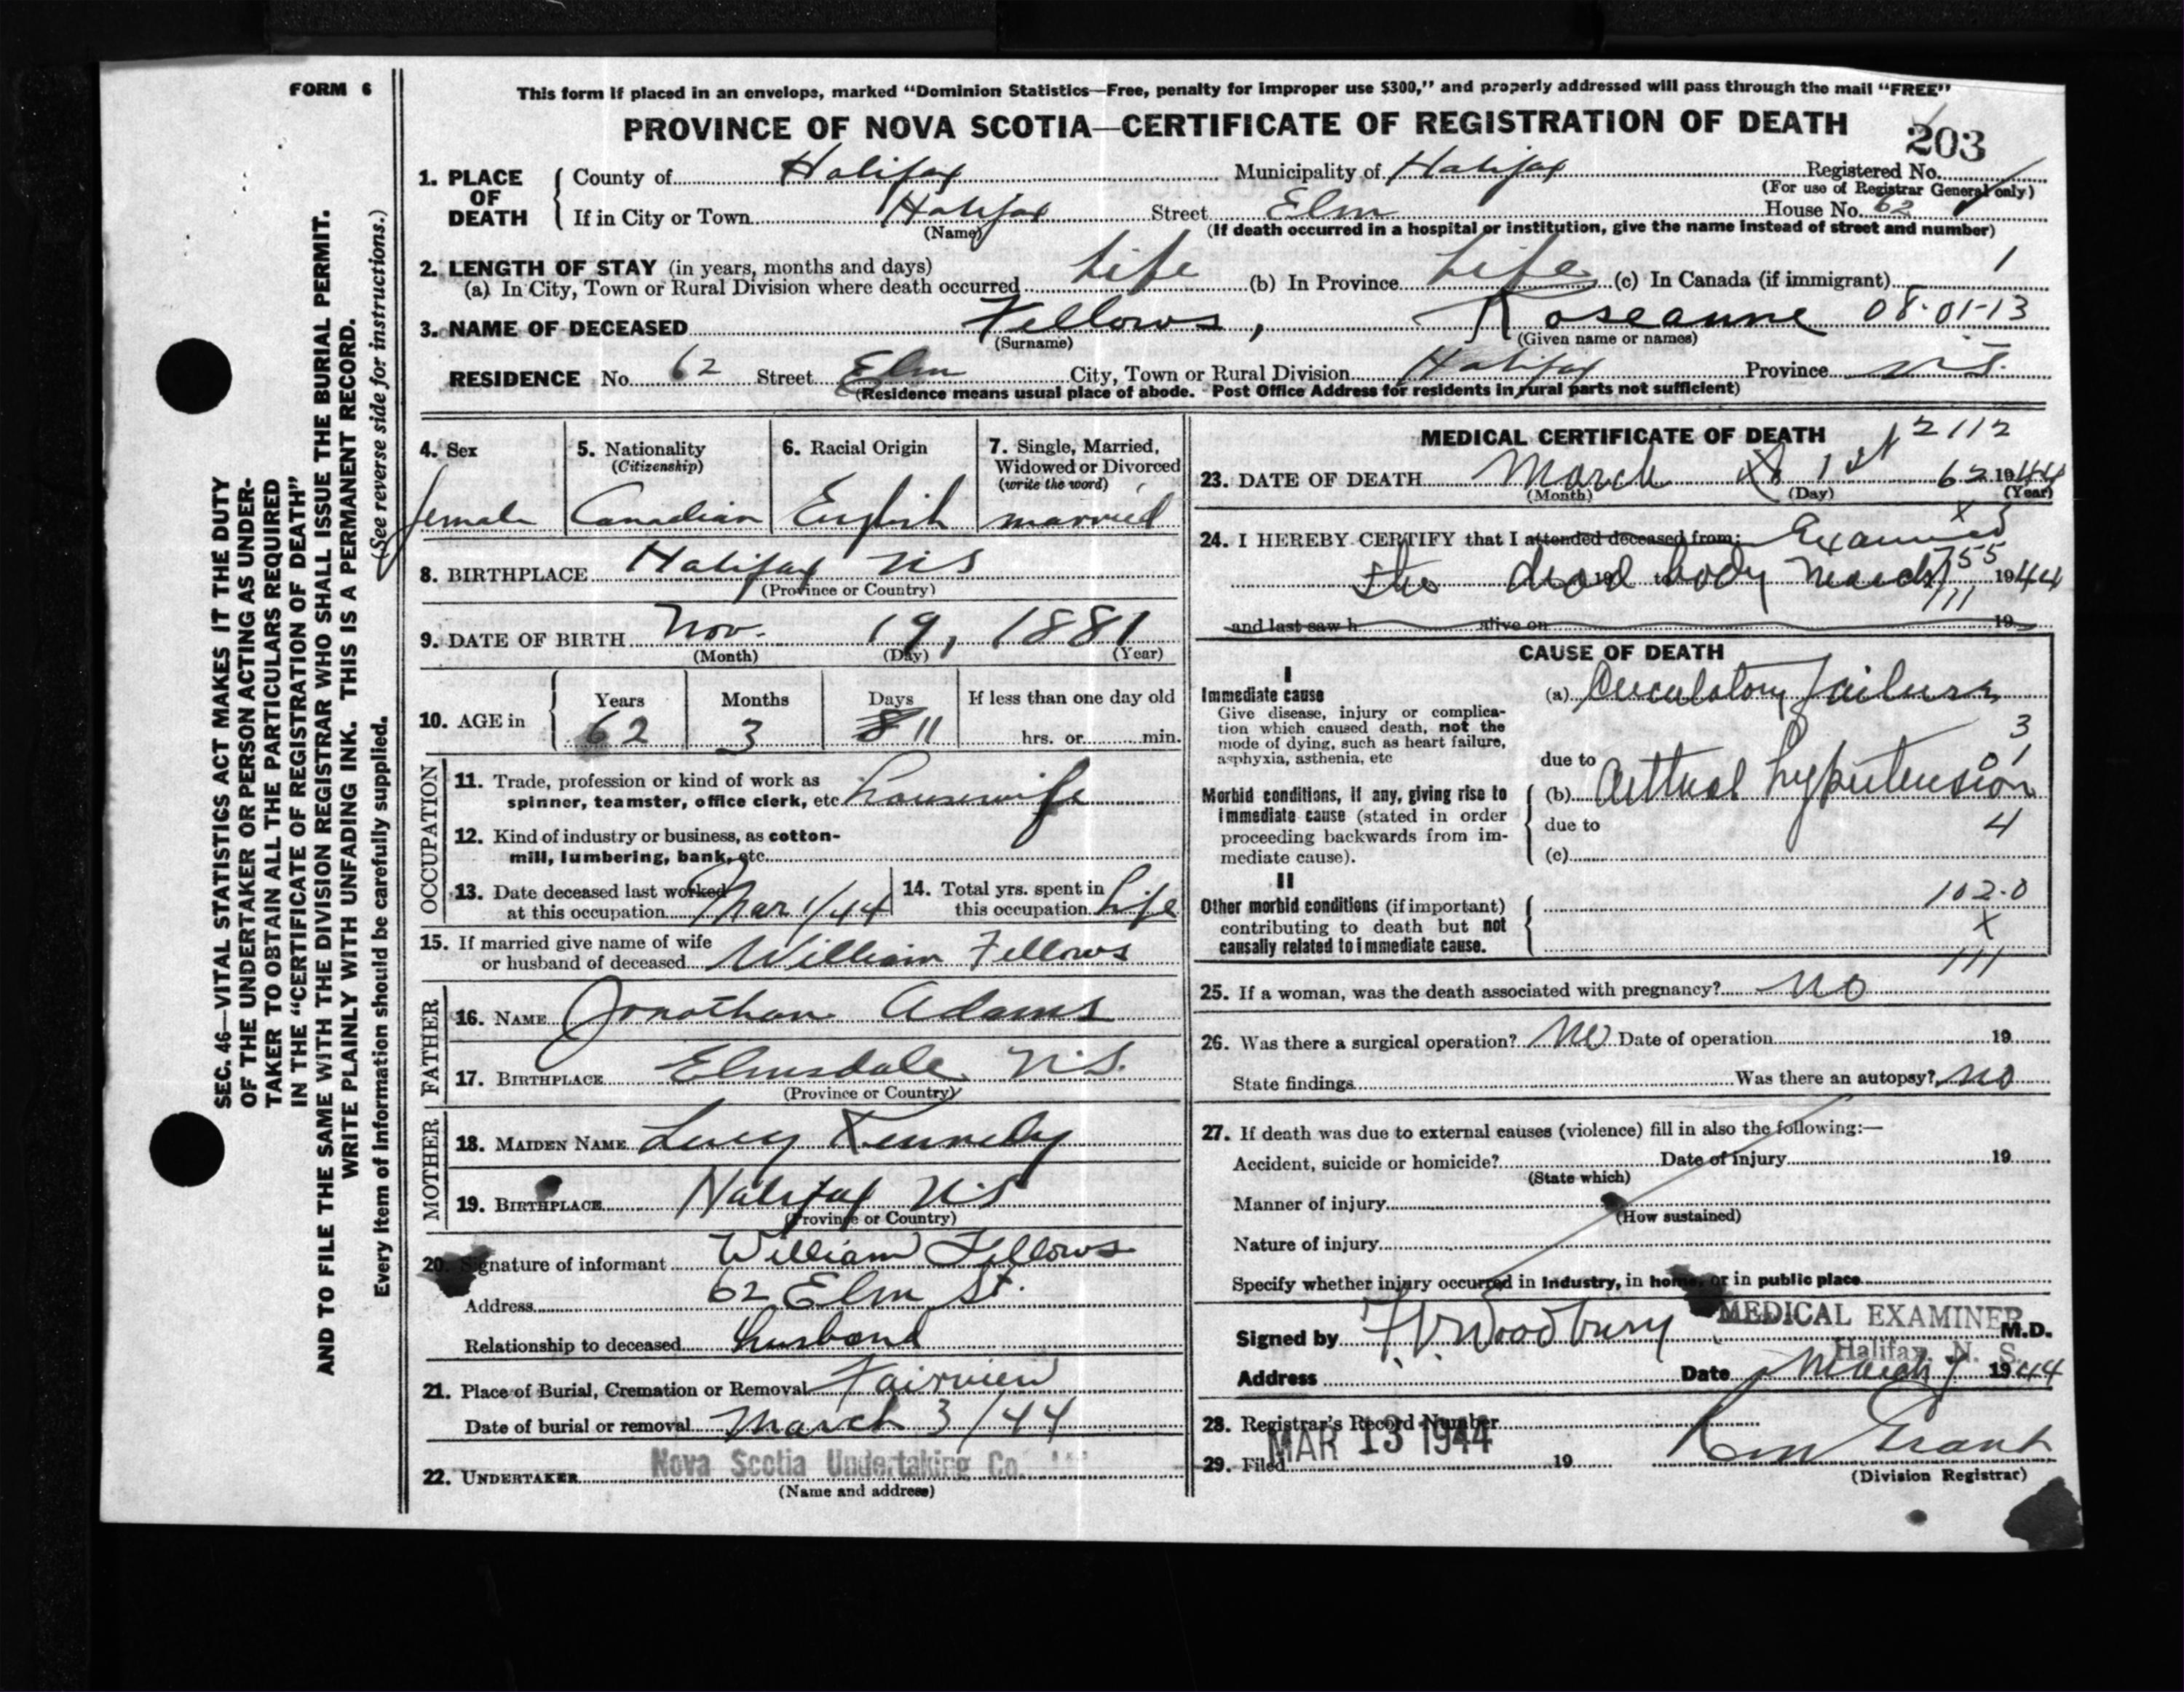 FORM 6
This form if placed in an envelope, marked “Dominion Statistics—Free, penalty for improper use $300,” and properly addressed will pass through the mail “FREE”
PROVINCE OF NOVA SCOTIA—CERTIFICATE OF REGISTRATION OF DEATH
203
1. PLACE OF DEATH County of Halifax Municipality of Halifax Registered No.
(For use of Registrar General only)
If in City or Town Halifax Street Elm House No. 62
(Name) (If death occurred in a hospital or institution, give the name instead of street and number)
2. LENGTH OF STAY (in years, months and days)
(a) In City, Town or Rural Division where death occurred Life (b) In Province Life (c) In Canada (if immigrant) 1
3. NAME OF DECEASED Fellows, Roseanne 08-01-13
(Surname) (Given name or names)
RESIDENCE No. 62 Street Elm City, Town or Rural Division Halifax Province N.S.
(Residence means usual place of abode. Post Office Address for residents in rural parts not sufficient)
4. Sex 5. Nationality (Citizenship) 6. Racial Origin 7. Single, Married, Widowed or Divorced (write the word)
female Canadian English married
8. BIRTHPLACE Halifax N S
(Province or Country)
9. DATE OF BIRTH Nov. 19, 1881
(Month) (Day) (Year)
10. AGE in Years Months Days If less than one day old
62 3 8 11 hrs. or min.
OCCUPATION
11. Trade, profession or kind of work as spinner, teamster, office clerk, etc. housewife
12. Kind of industry or business, as cotton-mill, lumbering, bank, etc.
13. Date deceased last worked at this occupation Mar 1/44 14. Total yrs. spent in this occupation Life
15. If married give name of wife or husband of deceased William Fellows
FATHER
16. NAME Jonathan Adams
17. BIRTHPLACE Elmsdale N.S.
(Province or Country)
MOTHER
18. MAIDEN NAME Lucy Kennedy
19. BIRTHPLACE Halifax N.S
(Province or Country)
20. Signature of informant William Fellows
Address 62 Elm St.
Relationship to deceased husband
21. Place of Burial, Cremation or Removal Fairview
Date of burial or removal March 3/44
22. UNDERTAKER Nova Scotia Undertaking Co.
(Name and address)
MEDICAL CERTIFICATE OF DEATH 2112
23. DATE OF DEATH March 1st 62 1944
(Month) (Day) (Year)
24. I HEREBY CERTIFY that I attended deceased from: Examined
the dead body March 755 1944
111
and last saw h alive on 19
CAUSE OF DEATH
I
Immediate cause
Give disease, injury or complication which caused death, not the mode of dying, such as heart failure, asphyxia, asthenia, etc
(a) Circulatory Failure
3
due to 01
Morbid conditions, if any, giving rise to immediate cause (stated in order proceeding backwards from immediate cause).
(b) Arterial hypertension
due to 4
(c)
II
Other morbid conditions (if important) contributing to death but not causally related to immediate cause.
102.0
X
111
25. If a woman, was the death associated with pregnancy? No
26. Was there a surgical operation? No Date of operation 19
State findings Was there an autopsy? No
27. If death was due to external causes (violence) fill in also the following:—
Accident, suicide or homicide? Date of injury 19
(State which)
Manner of injury
(How sustained)
Nature of injury
Specify whether injury occurred in industry, in home, or in public place
Signed by Woodbury MEDICAL EXAMINER M.D.
Halifax, N. S.
Address Date March 7 1944
28. Registrar's Record Number
MAR 13 1944
29. Filed 19 Grant
(Division Registrar)
SEC. 46—VITAL STATISTICS ACT MAKES IT THE DUTY
OF THE UNDERTAKER OR PERSON ACTING AS UNDER-
TAKER TO OBTAIN ALL THE PARTICULARS REQUIRED
IN THE “CERTIFICATE OF REGISTRATION OF DEATH”
AND TO FILE THE SAME WITH THE DIVISION REGISTRAR WHO SHALL ISSUE THE BURIAL PERMIT.
WRITE PLAINLY WITH UNFADING INK. THIS IS A PERMANENT RECORD.
(See reverse side for instructions.)
Every item of information should be carefully supplied.